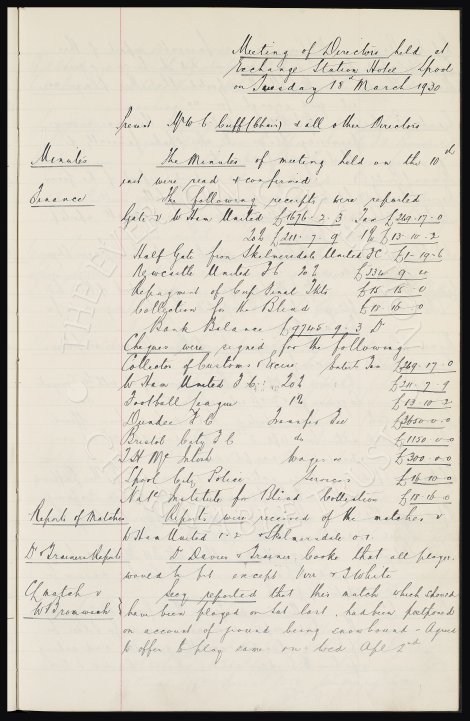 Meeting of Directors held at
Exchange Station Hotel L'pool
on Tuesday 18th March 1930
Present Mr W C Cuff (Chair) & all other Directors
Minutes The Minutes of meeting held on the 10th
inst were read & confirmed
Finance The following receipts were reported
Gate v W Ham United £1676-2-3 Tax £249-17-0
20% £211-7-9 1% £13-10-2
Half Gate from Skelmersdale United FC £1-19-6
Newcastle United FC 20% £334-9-11
Repayment of Cup Final Tkts £15-15-0
Collection for the Blind £18-16-0
Bank Balance £9745-9-3 Dr
Cheques were signed for the following
Collector of Customs & Excise Entert Tax £249-17-0
W Ham United F C 20% £211-7-9
Football League 1% £13-10-2
Dundee F C Transfer Fee
Bristol City F C do £1150-0-0
Wages ac £300-0-0
L'pool City Police Services £16-10-0
Natl Institute for Blind Collection £18-16-0
Reports of Matches Reports were received of the matches v
W Ham United 1-2 & Skelmersdale
Dr & Trainers Reports Dr Davies & Trainer Cooke that all players
would be fit except & T White
CL match v Secy reported that this match which should
W Bromwich have been played on Sat last, had been postponed
on account of ground being snowbound - Agreed
to offer to play same on Wed Apl 2nd